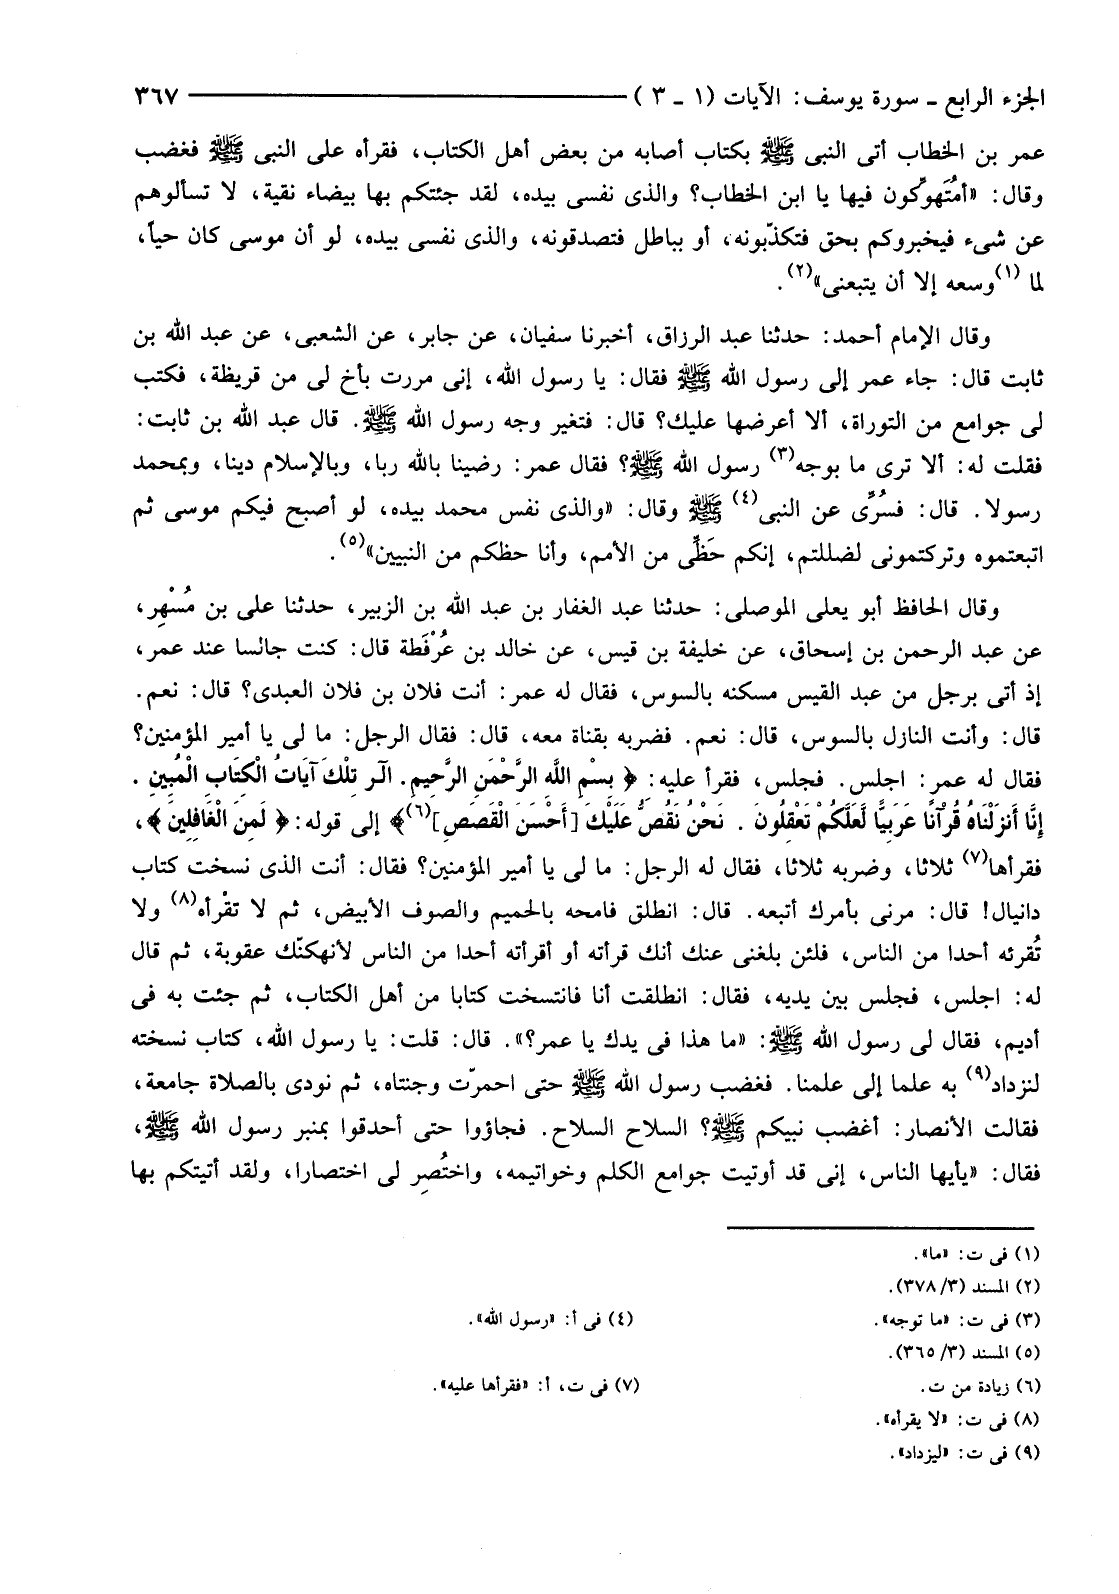 الجزء الرابع ـ سورة يوسف: الآيات (١ ـ ٣) ٣٦٧
عمر بن الخطاب أتى النبى ﷺ بكتاب أصابه من بعض أهل الكتاب، فقرأه على النبى ﷺ فغضب
وقال: «أمُتَهوِّكون فيها يا ابن الخطاب؟ والذى نفسى بيده، لقد جئتكم بها بيضاء نقية، لا تسألوهم
عن شىء فيخبروكم بحق فتكذّبونه، أو بباطل فتصدقونه، والذى نفسى بيده، لو أن موسى كان حياً،
لما (١)وسعه إلا أن يتبعنى»(٢).
وقال الإمام أحمد: حدثنا عبد الرزاق، أخبرنا سفيان، عن جابر، عن الشعبى، عن عبد الله بن
ثابت قال: جاء عمر إلى رسول الله ﷺ فقال: يا رسول الله، إنى مررت بأخ لى من قريظة، فكتب
لى جوامع من التوراة، ألا أعرضها عليك؟ قال: فتغير وجه رسول الله ﷺ. قال عبد الله بن ثابت:
فقلت له: ألا ترى ما بوجه(٣) رسول الله ﷺ؟ فقال عمر: رضينا بالله ربا، وبالإسلام دينا، وبمحمد
رسولا. قال: فسُرِّى عن النبى(٤) ﷺ وقال: «والذى نفس محمد بيده، لو أصبح فيكم موسى ثم
اتبعتموه وتركتمونى لضللتم، إنكم حَظِّى من الأمم، وأنا حظكم من النبيين»(٥).
وقال الحافظ أبو يعلى الموصلى: حدثنا عبد الغفار بن عبد الله بن الزبير، حدثنا على بن مُسْهِر،
عن عبد الرحمن بن إسحاق، عن خليفة بن قيس، عن خالد بن عُرْفَطة قال: كنت جالسا عند عمر،
إذ أتى برجل من عبد القيس مسكنه بالسوس، فقال له عمر: أنت فلان بن فلان العبدى؟ قال: نعم.
قال: وأنت النازل بالسوس، قال: نعم. فضربه بقناة معه، قال: فقال الرجل: ما لى يا أمير المؤمنين؟
فقال له عمر: اجلس. فجلس، فقرأ عليه: ﴿ بِسْمِ اللَّه الرَّحْمَنِ الرَّحِيمِ. الٓر تِلْكَ آيَاتُ الْكِتَابِ الْمُبِينِ .
إِنَّا أَنزَلْنَاهُ قُرْآنًا عَرَبِيًّا لَّعَلَّكُمْ تَعْقِلُونَ . نَحْنُ نَقُصُّ عَلَيْكَ [أَحْسَنَ الْقَصَصِ](٦)﴾ إلى قوله: ﴿ لَمِنَ الْغَافِلِينَ ﴾،
فقرأها(٧) ثلاثا، وضربه ثلاثا، فقال له الرجل: ما لى يا أمير المؤمنين؟ فقال: أنت الذى نسخت كتاب
دانيال! قال: مرنى بأمرك أتبعه. قال: انطلق فامحه بالحميم والصوف الأبيض، ثم لا تقْرأه(٨) ولا
تُقرئه أحدا من الناس، فلئن بلغنى عنك أنك قرأته أو أقرأته أحدا من الناس لأنهكنّك عقوبة، ثم قال
له: اجلس، فجلس بين يديه، فقال: انطلقت أنا فانتسخت كتابا من أهل الكتاب، ثم جئت به فى
أديم، فقال لى رسول الله ﷺ: «ما هذا فى يدك يا عمر؟». قال: قلت: يا رسول الله، كتاب نسخته
لنزداد(٩) به علما إلى علمنا. فغضب رسول الله ﷺ حتى احمرّت وجنتاه، ثم نودى بالصلاة جامعة،
فقالت الأنصار: أغضب نبيكم ﷺ؟ السلاح السلاح. فجاؤوا حتى أحدقوا بمنبر رسول الله ﷺ،
فقال: «يأيها الناس، إنى قد أوتيت جوامع الكلم وخواتيمه، واختُصِر لى اختصارا، ولقد أتيتكم بها
(١) فى ت: «ما».
(٢) المسند (٣/ ٣٧٨).
(٣) فى ت: «ما توجه». (٤) فى أ: «رسول الله».
(٥) المسند (٣/ ٣٦٥).
(٦) زيادة من ت. (٧) فى ت، أ: «فقرأها عليه».
(٨) فى ت: «لا يقرأه».
(٩) فى ت: «ليزداد».